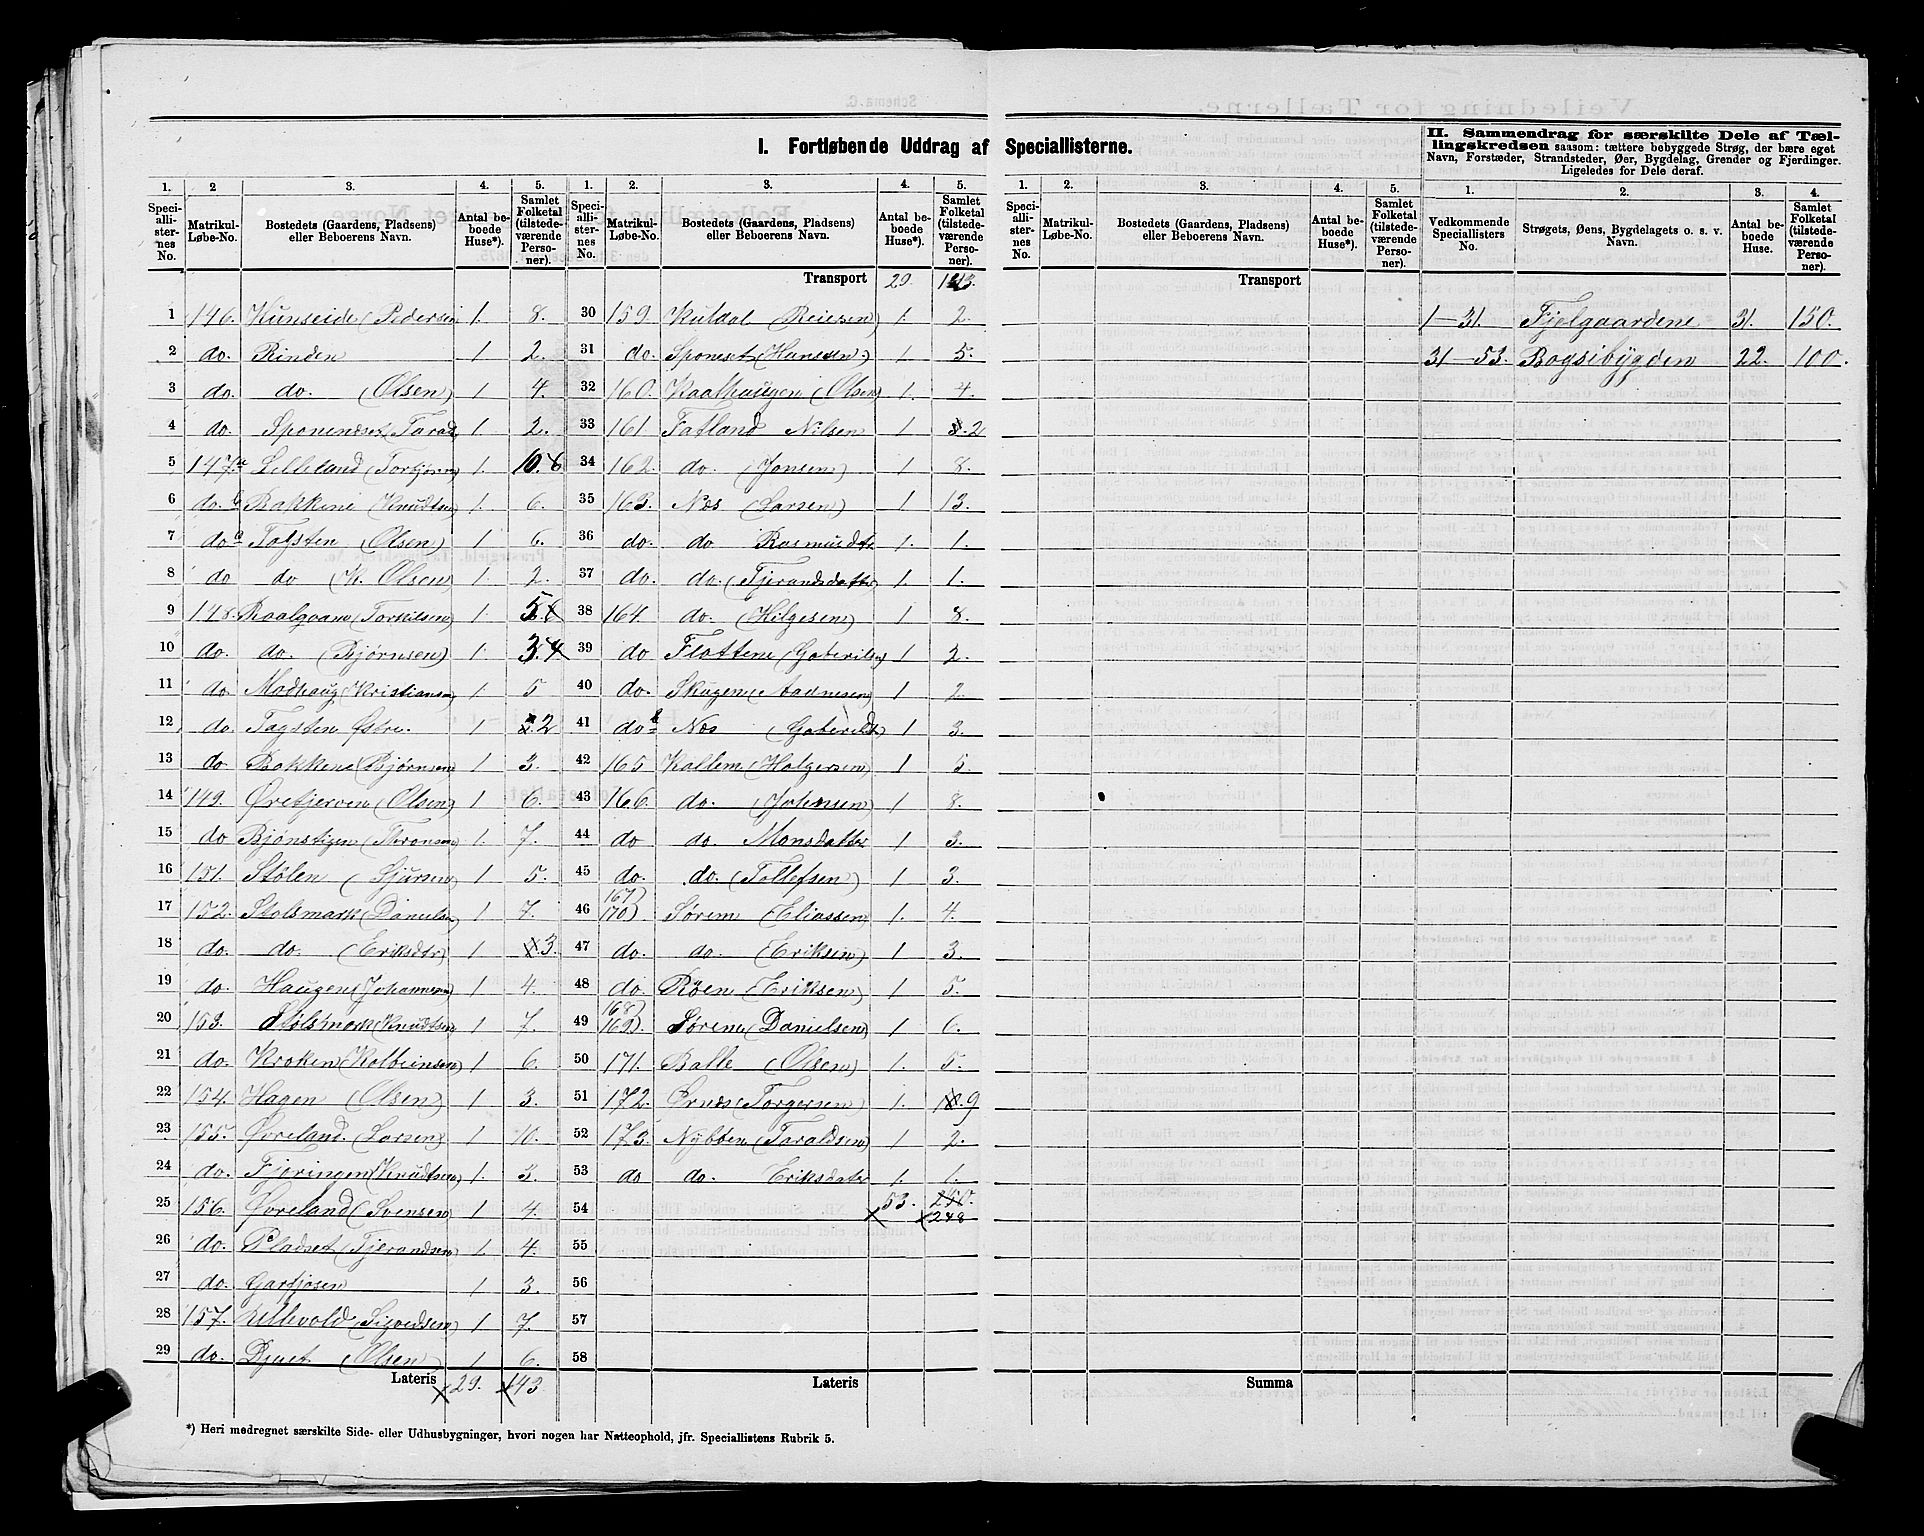 I. Fortløbende Uddrag af Speciallisterne.
II. Sammendrag for særskilte Dele af Tæl-
lingskredsen saasom: tættere bebyggede Strøg, der bære eget
Navn, Forstæder, Strandsteder, Øer, Bygdelag, Grender og Fjerdinger.
Ligeledes for Dele deraf.
1. 2 3. 4. 5. 1. 2. 3. 4. 5. 1. 2. 3. 4. 5. 1. 2. 3. 4.
Speciallisternes No. Matrikul-Løbe-No. Bostedets (Gaardens, Pladsens) eller Beboerens Navn. Antal beboede Huse*). Samlet Folketal (tilstedeværende Personer).
Speciallisternes No. Matrikul-Løbe-No. Bostedets (Gaardens, Pladsens) eller Beboerens Navn. Antal beboede Huse*). Samlet Folketal (tilstedeværende Personer).
Speciallisternes No. Matrikul-Løbe-No. Bostedets (Gaardens, Pladsens) eller Beboerens Navn. Antal beboede Huse*). Samlet Folketal (tilstedeværende Personer).
Vedkommende Speciallisters No. Strøgets, Øens, Bygdelagets o. s. v. Navn. Antal beboede Huse. Samlet Folketal (tilstedeværende Personer).
Transport 29. 143.
Transport
1 146. Kunseide (Pedersen 1. 8.
2 do. Rinden 1 2.
3 do. do. (Olsen) 1 4.
4 do. Sponemset (Tarald 1. 2.
5 147.a Lilleland (Torbjørn) 1. 10. 8
6 do. b Bakkene (Knudtsen) 1. 6.
7 do c Tagsten (Olsen) 1 6.
8 do do (K. Olsen) 1. 2.
9 148. Raalgaard (Torkilsen) 1 5. 6
10 do. do. (Bjørnsen) 1. 3. 4
11 do. Modhaug (Kristiansen) 1. 5
12 do. Tagsten Østre. 1 2
13 do Bakkene (Bjørnsen) 1 3.
14 149. Ørekjerren (Olsen) 1 6.
15 do Bjønstigen (Thronsen) 1. 7.
16 151. Stølen (Sjursen) 1 5.
17 152. Stolsmark (Danielsen 1 7.
18 do. do. (Eriksdtr) 1 3.
19 do. Haugen (Johannesen) 1 4.
20 153. Stolsmark (Knudtsen 1 7.
21 do. Kroken (Kolbeinsen) 1 6.
22 154. Hagen (Olsen) 1 3.
23 155. Øvreland (Larsen) 1 10.
24 do. Fjeringen (Knudtsen) 1. 3.
25 156. Øvreland (Svensen) 1 4.
26 do. Pladset (Tjerandsen) 1 4.
27 do. Garfjosen 1 3.
28 157. Ullevold (Sigvedsen) 1 7.
29 do. Djuvet (Olsen) 1 6.
Lateris 29. 143
30 159. Kuldal Reiersen) 1. 2.
31 do. Sponset (Hansen) 1 5.
32 160. Kaalhaugen (Olsen) 1. 4.
33 161. Fatland Nilsen 1 8. 2
34 162. do. (Jonsen) 1 8.
35 163. Næs (Larsen) 1 13.
36 do. do Rasmusdtr 1. 1.
37 do. do. (Tjerandsdatter) 1. 1.
38 164. do. (Helgesen) 1 8.
39 do Flottene (Gaberilsen) 1 2.
40 do. Skugen (Aadnesen) 1 2.
41 do b Næs (Gaberildtr) 1 3.
42 165 Kallem (Holgersen) 1 5.
43 166. do. (Johnsen) 1 8.
44 do do. Monsdatter 1 3.
45 do. do. (Tollefsen) 1 3.
46 167) 170). Sørem (Eliassen) 1. 4.
47 do. do. (Eriksen) 1 3.
48 do. Røen (Eriksen) 1 5.
49 168) 169). Sørem (Danielsen) 1 6.
50 171. Balle (Olsen) 1. 5.
51 172. Ørnes (Torgersen) 1. 10. 9
52 173. Nybben (Taraldsen) 1 2.
53 do do. Eriksdatr 1. 1.
54 53. 250. 248
55
56
57
58
Lateris
Summa
1–31. Fjelgaardene 31. 150.
31–53. Bogsibygden 22. 100.
*) Heri medregnet særskilte Side- eller Udhusbygninger, hvori nogen har Natteophold, jfr. Speciallistens Rubrik 5.